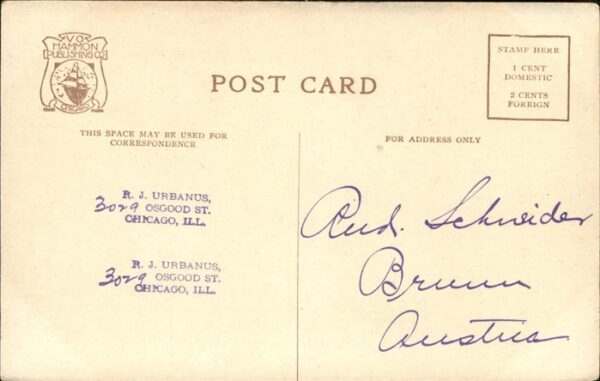 V.O.
HAMMON
PUBLISHING CO.
CHICAGO
POST CARD
STAMP HERE
1 CENT
DOMESTIC
2 CENTS
FOREIGN
THIS SPACE MAY BE USED FOR
CORRESPONDENCE
FOR ADDRESS ONLY
R. J. URBANUS,
3029 OSGOOD ST.
CHICAGO, ILL.
R. J. URBANUS,
3029 OSGOOD ST.
CHICAGO, ILL.
Rud. Schneider
Brunn
Austria